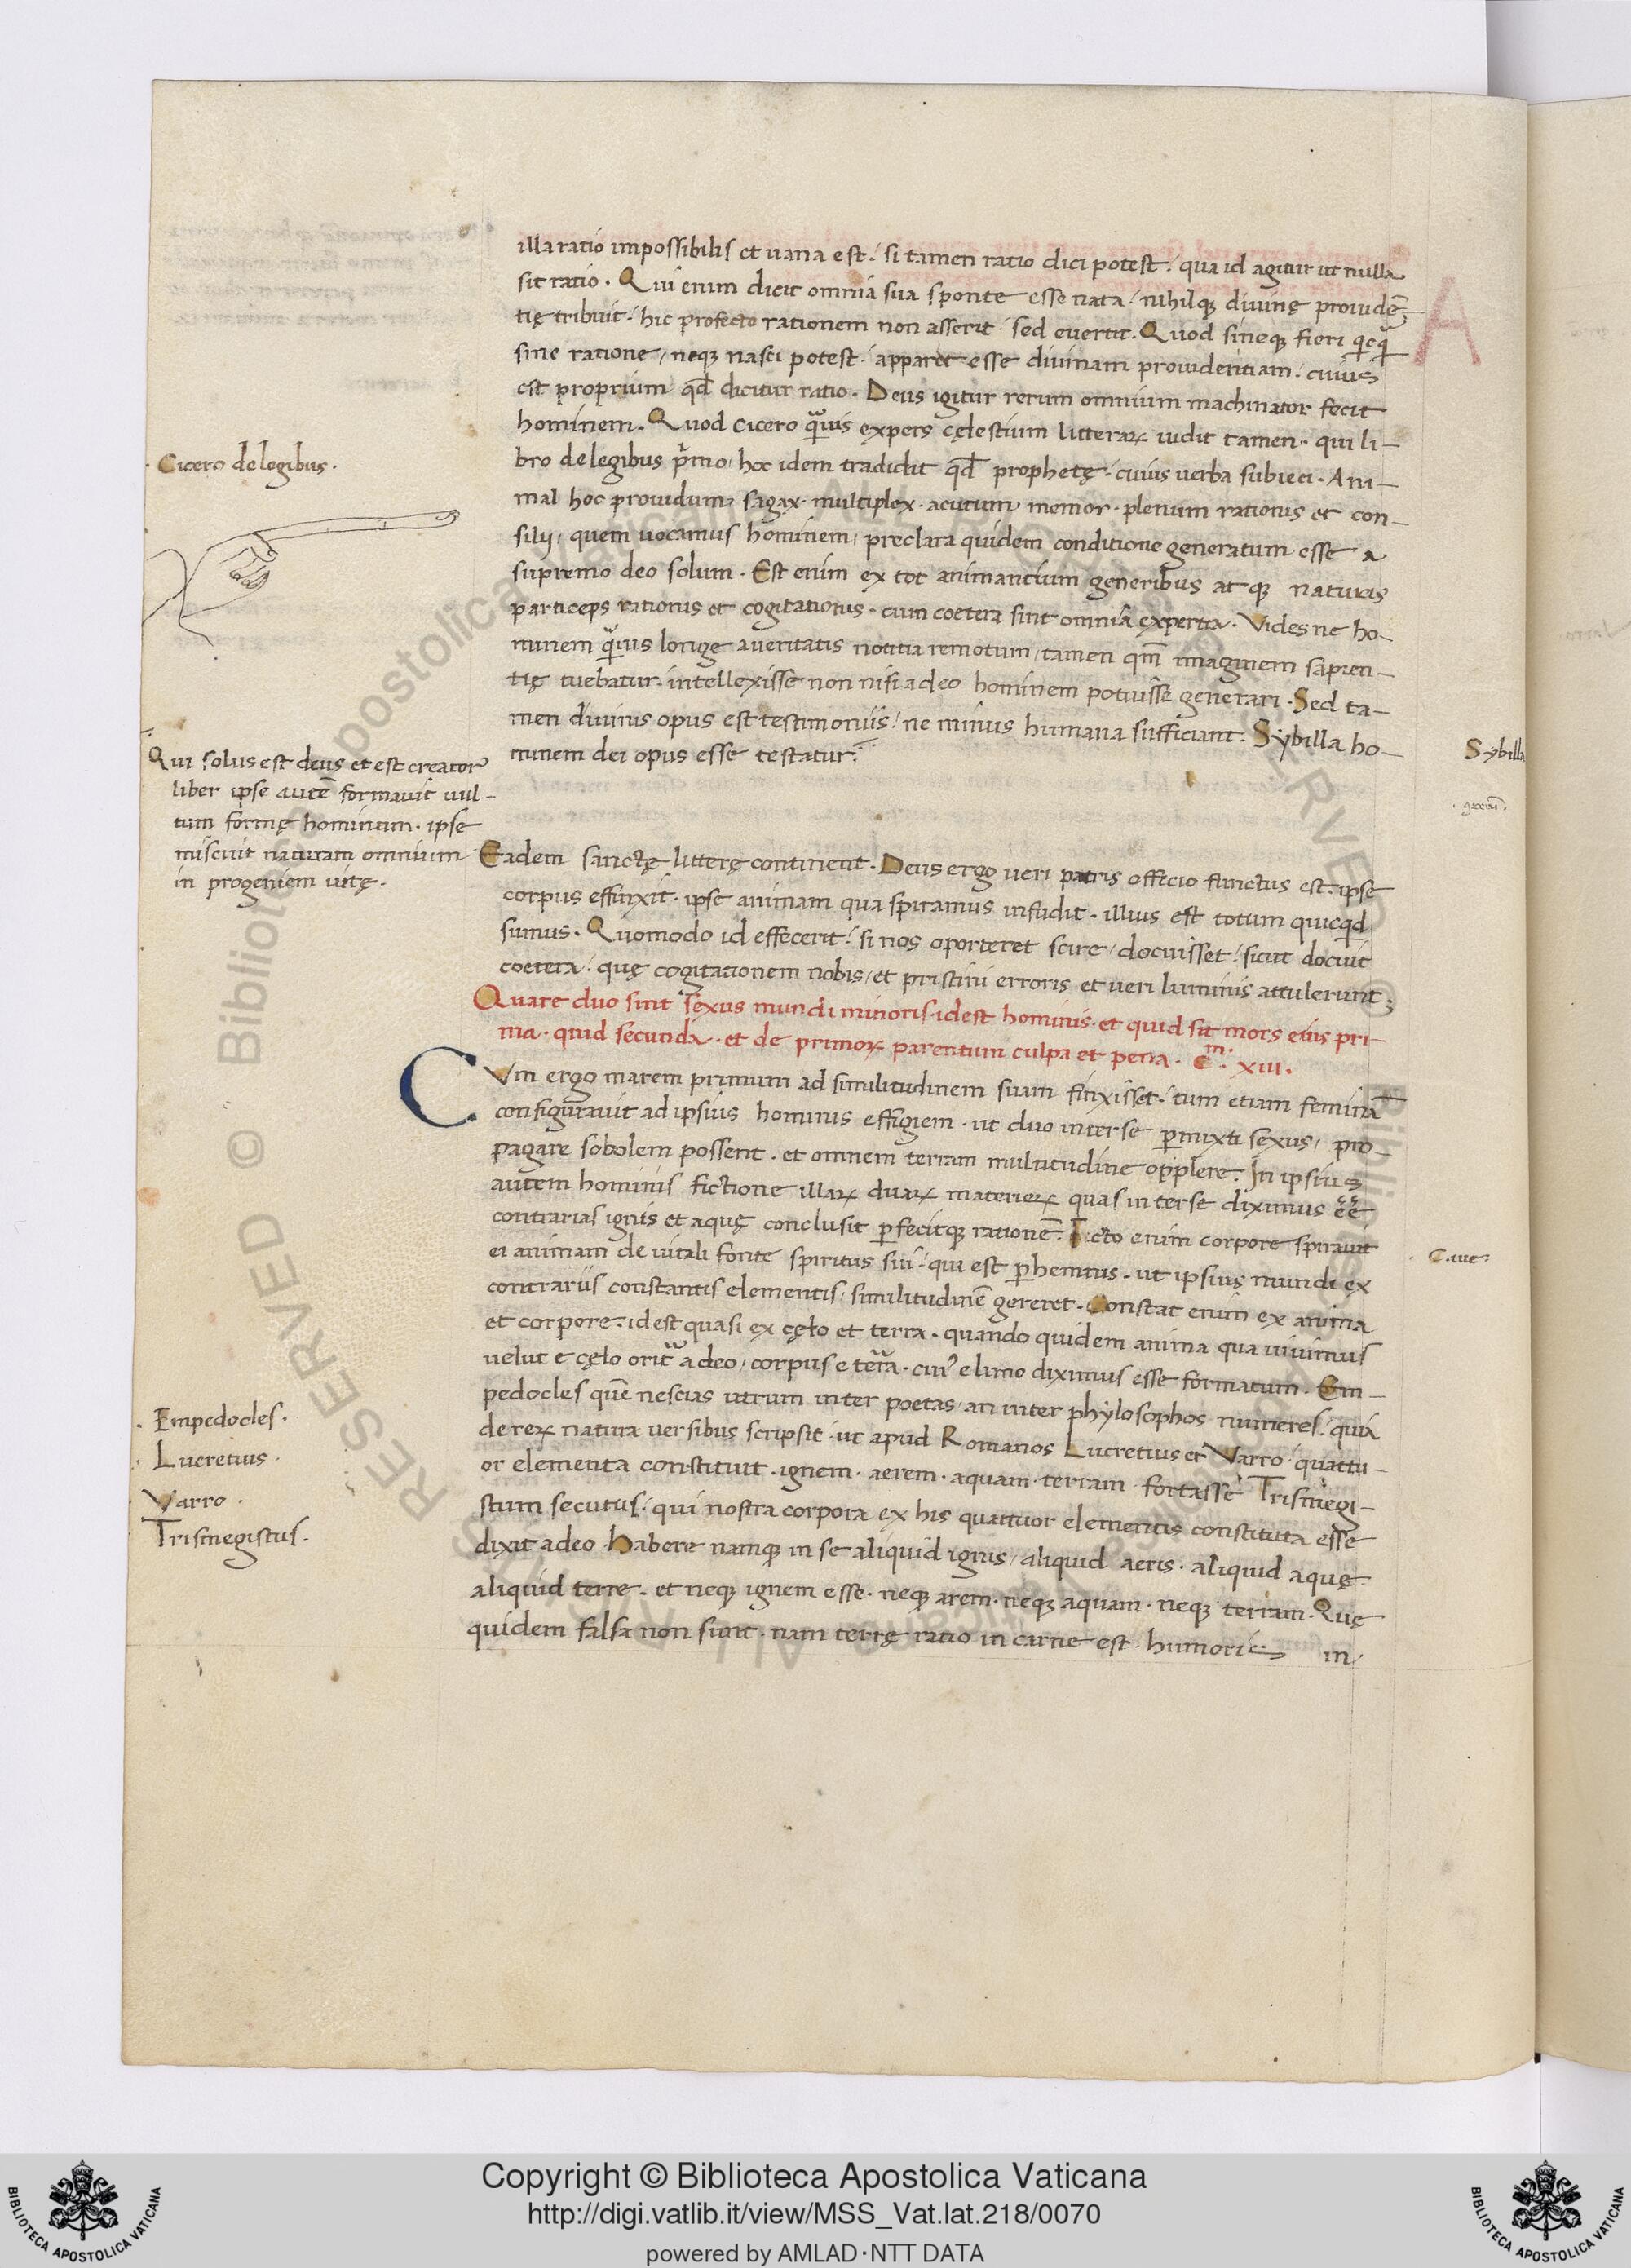 illa ratio impossibilis et uana est. si tamen ratio dici potest. qua id agitur ut nulla
sit ratio. Qui enim dicit omnia sua sponte esse nata. nihilqꝫ diuinę prouidē-
tię tribuit. hic profecto rationem non asserit sed euertit. Quod si neqꝫ fieri qicq̃
sine ratione, neqꝫ nasci potest. apparet esse diuinam prouidentiam. cuius
est proprium qđ dicitur ratio. Deus igitur rerum omnium machinator fecit
hominem. Quod Cicero q̃uis expers cęlestium litteraꝝ uidit tamen. qui li-
bro de legibus p̃mo, hoc idem tradidit qđ prophetę. cuius uerba subieci. Ani-
mal hoc prouidum, sagax. multiplex. acutum, memor. plenum rationis et con-
silii, quem uocamus hominem, preclara quidem conditione generatum esse a
supremo deo solum. Est enim ex tot animantium generibus atqꝫ naturis
particeps rationis et cogitationis. cum coetera sint omnia expertia. Vides ne ho-
minem q̃uis longe a ueritatis notitia remotum, tamen qm̄ imaginem sapien-
tię tuebatur. intellexisse non nisi a deo hominem potuisse generari. Sed ta-
men diuinis opus est testimoniis, ne minus humana sufficiant. Sybilla ho-
minem dei opus esse testatur.
Eadem sanctę litterę continent. Deus ergo ueri patris officio functus est. ipse
corpus effinxit. ipse animam qua spiramus infudit. illius est totum quicqd
sumus. Quomodo id effecerit. si nos oporteret scire, docuisset. sicut docuit
coetera. quę cogitationem nobis, et pristini erroris et ueri luminis attulerunt;
Quare duo sint sexus mundi minoris. idest hominis. et quid sit mors eius pri-
ma. quid secunda. et de primoꝝ parentum culpa et pena. Cm. xiii.
CVm ergo marem primum ad similitudinem suam finxisset. tum etiam feminā
configurauit ad ipsius hominis effigiem. ut duo inter se ꝑmixti sexus, pro-
pagare sobolem possent. et omnem terram multitudine opplere. In ipsius
autem hominis fictione illaꝝ duaꝝ materieꝝ quas inter se diximus ee͂
contrarias ignis et aquę conclusit ꝑfecitqꝫ rationē. Ficto enim corpore spirauit
ei animam de uitali fonte spiritus sui. qui est ꝑhennis. ut ipsius mundi ex
contrariis constantis elementis, similitudinē gereret. Constat enim ex anima
et corpore. idest quasi ex cęlo et terra. quando quidem anima qua uiuimus
uelut e cęlo orit᷑ a deo, corpus e terra. cui᷒ e limo diximus esse formatum. Em-
pedocles quē nescias utrum inter poetas, an inter phylosophos numeres. quia
de reꝝ natura uersibus scripsit. ut apud Romanos Lucretius et Varro. quattu-
or elementa constituit. ignem. aerem. aquam. terram fortasse Trismegi-
stum secutus. qui nostra corpora ex his quattuor elementis constituta esse
dixit a deo. Habere namqꝫ in se aliquid ignis, aliquid aeris. aliquid aquę.
aliquid terre. et neqꝫ ignem esse. neqꝫ arem. neqꝫ aquam. neqꝫ terram. Quę
quidem falsa non sunt. nam terrę ratio in carne est. humoris in
. Cicero de legibus.
Qui solus est deus et est creator
liber ipse autē formauit uul-
tum formę hominum. ipse
miscuit naturam omnium
in progeniem uitę.
. Empedocles.
. Lucretius.
Varro.
Trismegistus.
Sybilla
Copyright © Biblioteca Apostolica Vaticana
http://digi.vatlib.it/view/MSS_Vat.lat.218/0070
powered by AMLAD·NTT DATA
BIBLIOTECA APOSTOLICA VATICANA
BIBLIOTECA APOSTOLICA VATICANA